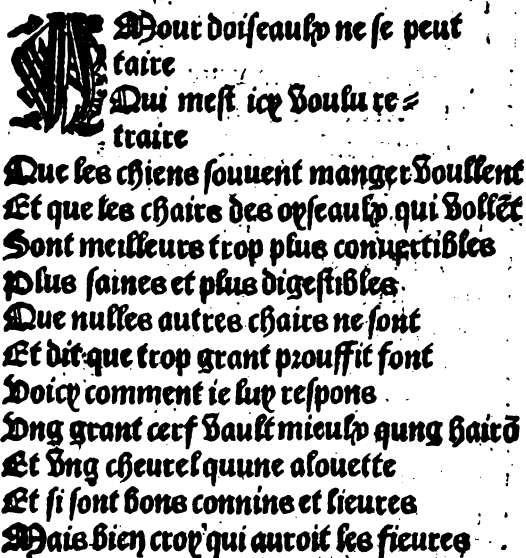 AMour doiseaulx ne se peut
taire
Qui mest icy voulu re=
traire
Que les chiens souuent manger voullent
Et que les chairs des oyseaulx qui vollẽt
Sont meilleurs trop plus conuertibles
Plus saines et plus digestibles
Que nulles autres chairs ne sont
Et dit que trop grant prouffit font
Voicy comment ie luy respons
Vng grant cerf vault mieulx qung hairõ
Et vng cheurel quune alouette
Et si sont bons connins et lieures
Mais bien croy qui auroit les fieures